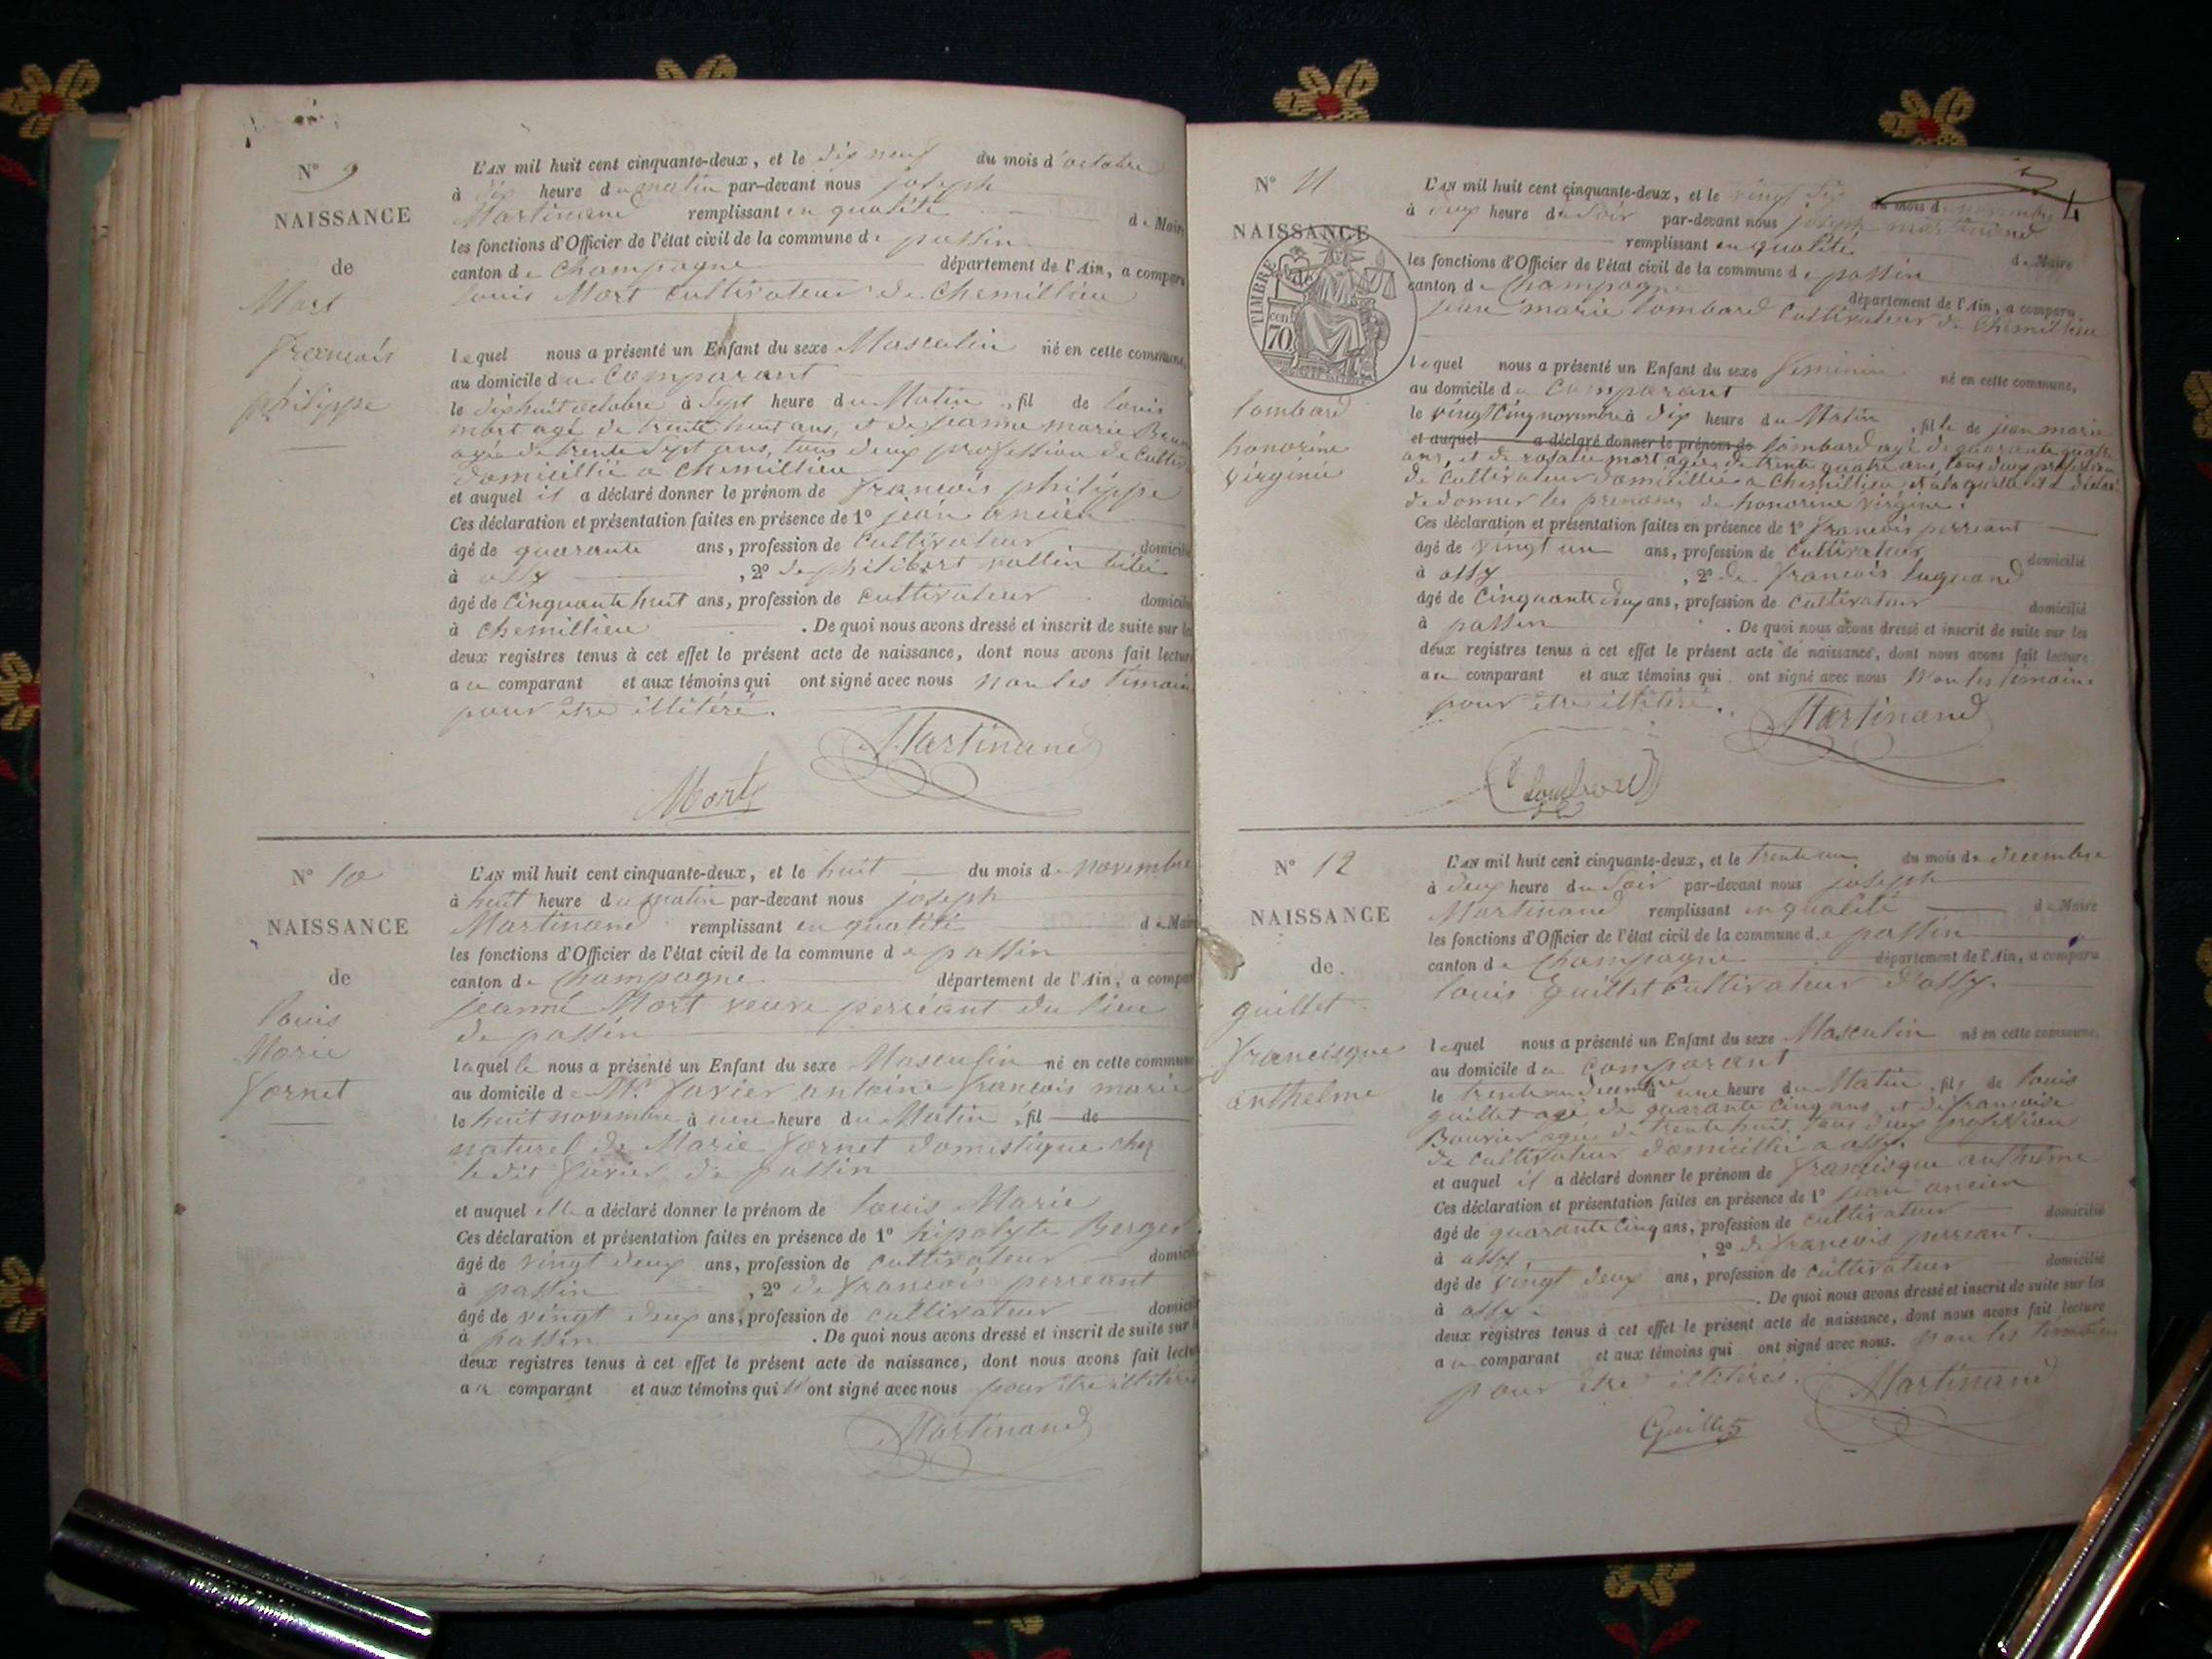 N° 9
NAISSANCE
de
Mort
François
philippe
L'AN mil huit cent cinquante-deux, et le dix neuf du mois d'octobre
à dix heure du matin par-devant nous joseph
Martinand remplissant en qualité de Maire
les fonctions d'Officier de l'état civil de la commune de passin
canton de Champagne département de l'Ain, a comparu
louis Mort cultivateur de chemillieu
lequel nous a présenté un Enfant du sexe Masculin né en cette commune,
au domicile du Comparant
le dix huit octobre à sept heure du Matin, fil de louis
mort agé de trente huit ans, et de jeanne marie
agée de trente sept ans, tous deux profession de
domicillié a chemillieu
et auquel il a déclaré donner le prénom de françois philippe
Ces déclaration et présentation faites en présence de 1° jean ancien
âgé de quarante ans, profession de Cultivateur domicilié
à assy, 2° de philibert vallin
âgé de Cinquante huit ans, profession de cultivateur domicilié
à chemillieu. De quoi nous avons dressé et inscrit de suite sur les
deux registres tenus à cet effet le présent acte de naissance, dont nous avons fait lecture
au comparant et aux témoins qui ont signé avec nous non les témoins
pour être illitéré.
Martinand
Mort
N° 10
NAISSANCE
de
louis
Marie
fornet
L'AN mil huit cent cinquante-deux, et le huit du mois de novembre
à huit heure du matin par-devant nous joseph
Martinand remplissant en qualité de Maire
les fonctions d'Officier de l'état civil de la commune de passin
canton de Champagne département de l'Ain, a comparu
jeanne Mort veuve perréant du lieu
de passin
laquelle nous a présenté un Enfant du sexe Masculin né en cette commune
au domicile de Mr. favier antoine françois marie
le huit novembre à une heure du Matin, fil de
naturel de Marie fornet domestique chez
le dit favier de passin
et auquel elle a déclaré donner le prénom de louis Marie
Ces déclaration et présentation faites en présence de 1° hipolyte Berger
âgé de vingt deux ans, profession de cultivateur domicilié
à passin, 2° de françois perreant
âgé de vingt deux ans, profession de cultivateur domicilié
à passin. De quoi nous avons dressé et inscrit de suite sur les
deux registres tenus à cet effet le présent acte de naissance, dont nous avons fait lecture
au comparant et aux témoins qui n'ont signé avec nous pour être illitéré
Martinand
4
N° 11
NAISSANCE
TIMBRE
70
lombard
honorine
virginie
L'AN mil huit cent cinquante-deux, et le vingt six du mois de novembre
à deux heure du soir par-devant nous joseph martinand
remplissant en qualité de Maire
les fonctions d'Officier de l'état civil de la commune de passin
canton de Champagne département de l'Ain, a comparu
jean marie lombard cultivateur de chemillieu
lequel nous a présenté un Enfant du sexe feminin né en cette commune,
au domicile du Comparant
le vingt cinq novembre à dix heure du Matin, fille de jean marie
et auquel a déclaré donner le prénom de lombard agé de quarante quatre
ans, et de rosalie mort agée de trente quatre ans, tous deux profession
de cultivateur domicillié a chemillieu et a laquelle il a déclaré
de donner les prenoms de honorine virginie.
Ces déclaration et présentation faites en présence de 1° françois perreant
âgé de vingt un ans, profession de cultivateur domicilié
à assy, 2° de françois luquand
âgé de Cinquante deux ans, profession de Cultivateur domicilié
à passin. De quoi nous avons dressé et inscrit de suite sur les
deux registres tenus à cet effet le présent acte de naissance, dont nous avons fait lecture
au comparant et aux témoins qui ont signé avec nous Non les témoins
pour être illitéré.
Martinand
Lombard
N° 12
NAISSANCE
de
guillet
francisque
anthelme
L'AN mil huit cent cinquante-deux, et le trente un du mois de decembre
à deux heure du soir par-devant nous joseph
Martinand remplissant en qualité de Maire
les fonctions d'Officier de l'état civil de la commune de passin
canton de Champagne département de l'Ain, a comparu
louis guillet cultivateur d'assy.
lequel nous a présenté un Enfant du sexe Masculin né en cette commune,
au domicile du Comparant
le trente un decembre à une heure du Matin, fils de louis
guillet agé de quarante cinq ans, et de françoise
Bouvier agée de trente huit, tous deux profession
de cultivateur domicillié a assy.
et auquel il a déclaré donner le prénom de francisque anthelme
Ces déclaration et présentation faites en présence de 1° jean ancien
âgé de quarante cinq ans, profession de cultivateur domicilié
à assy, 2° de françois perreant.
âgé de vingt deux ans, profession de cultivateur domicilié
à assy. De quoi nous avons dressé et inscrit de suite sur les
deux registres tenus à cet effet le présent acte de naissance, dont nous avons fait lecture
au comparant et aux témoins qui ont signé avec nous. non les témoins
pour être illitérés.
Martinand
Guillet